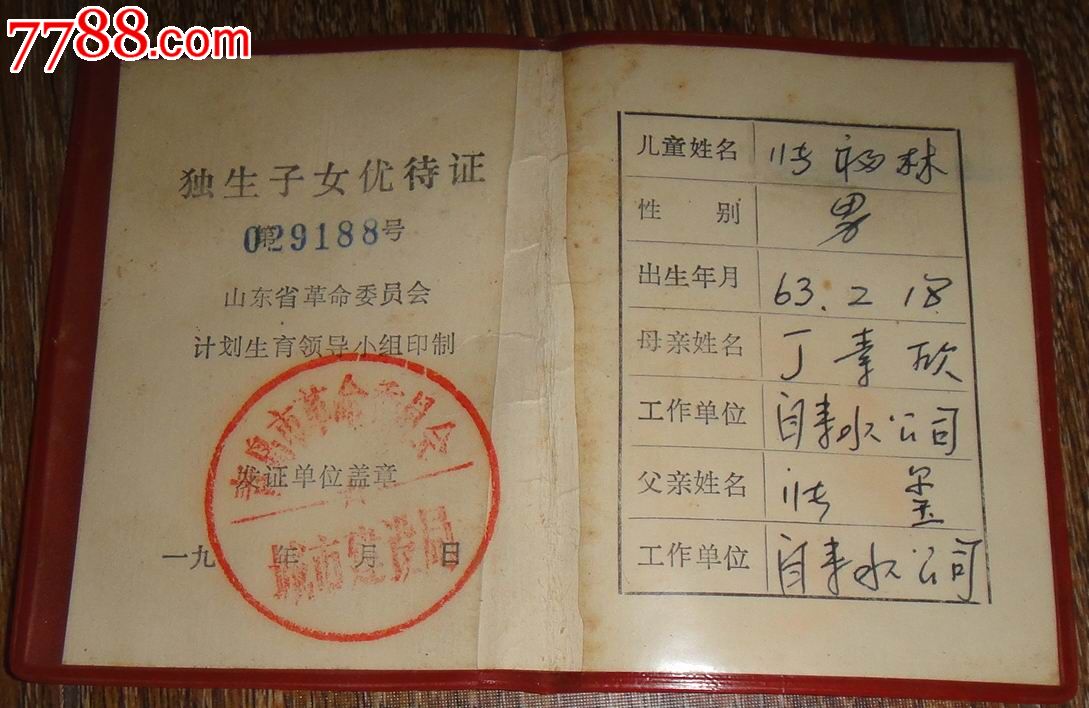 7788.com
独生子女优待证
第029188号
山东省革命委员会
计划生育领导小组印制
市革命委员会
发证单位盖章
城市建设局
一九 年 月 日
儿童姓名 张福林
性别 男
出生年月 63.2 18
母亲姓名 丁素欣
工作单位 自来水公司
父亲姓名 张玺
工作单位 自来水公司